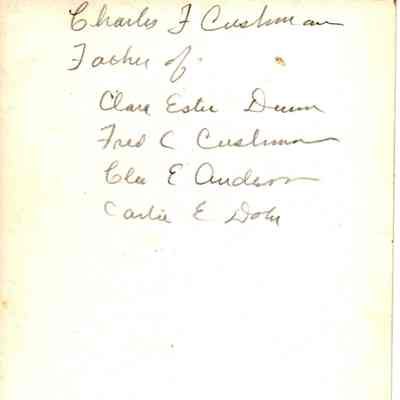 Charles F Cushman
Father of
Clara Ester Dunn
Fred C Cushman
Cleo E Anderson
Carlie E Dohr